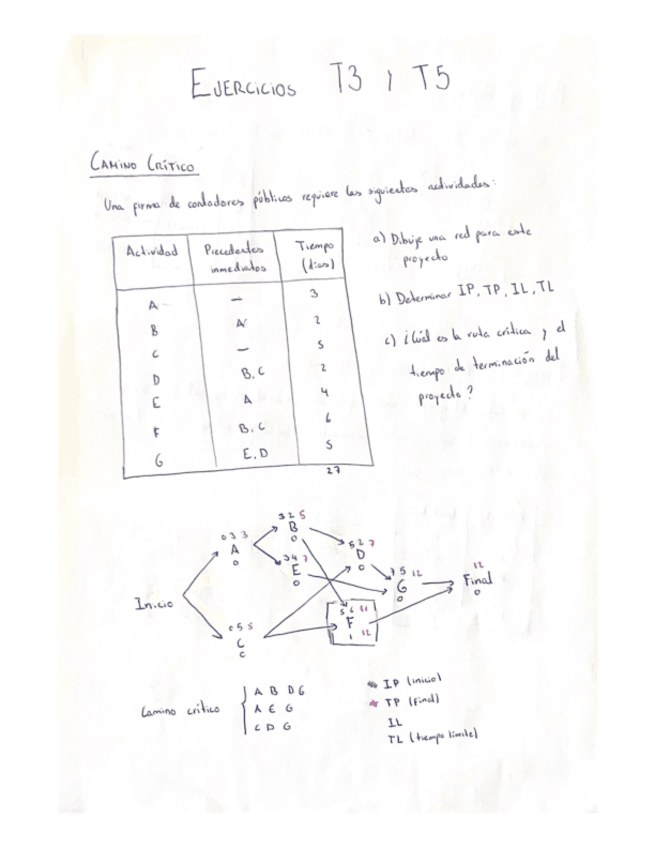 EJERCICIOS T3 Y T5
CAMINO CRÍTICO
Una firma de contadores públicos requiere las siguientes actividades:
Actividad Precedentes inmediatos Tiempo (días)
A — 3
B A 2
C — 5
D B, C 2
E A 4
F B, C 6
G E, D 5
27
a) Dibuje una red para este
proyecto
b) Determinar IP, TP, IL, TL
c) ¿Cuál es la ruta crítica y el
tiempo de terminación del
proyecto?
Inicio
0 3 3
A
0
0 5 5
C
0
3 2 5
B
0
3 4 7
E
0
5 2 7
D
0
5 6 11
F
1 12
7 5 12
G
0
12
Final
0
Camino crítico
A B D G
A E G
C D G
IP (inicio)
TP (final)
IL
TL (tiempo límite)